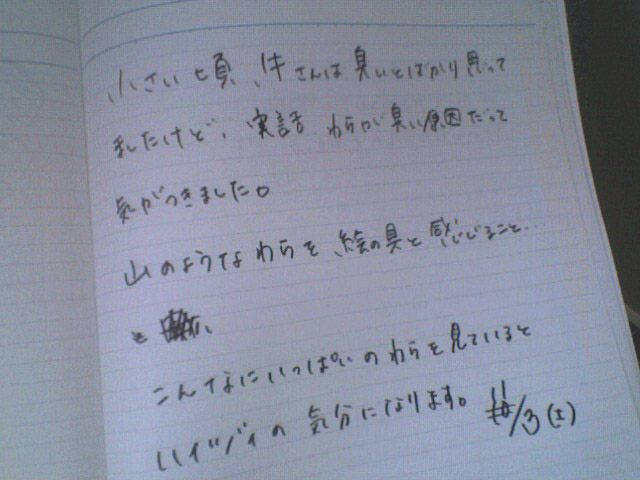 小さい頃、牛さんは臭いとばかり思って
ましたけど、実話 わらが臭い原因だって
気がつきました。
山のようなわらを絵の具と感じること…
と
こんなにいっぱいのわらを見ていると
ハイジの気分になります。 11/3(土)